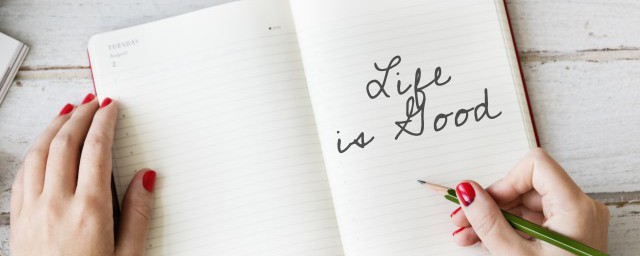 TUESDAY
August
2
Life
is Good